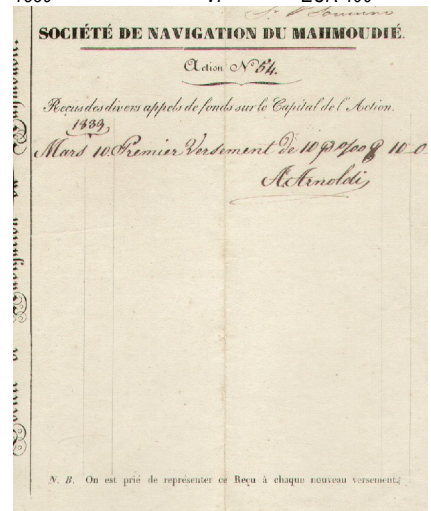 SOCIÉTÉ DE NAVIGATION DU MAHMOUDIÉ.
Action N.º 54.
Reçus des divers appels de fonds sur le Capital de l'Action.
1839,
Mars 10. Premier Versement de 10 p % 10 0
A. Arnoldi
N. B. On est prié de représenter ce Reçu à chaque nouveau versement.